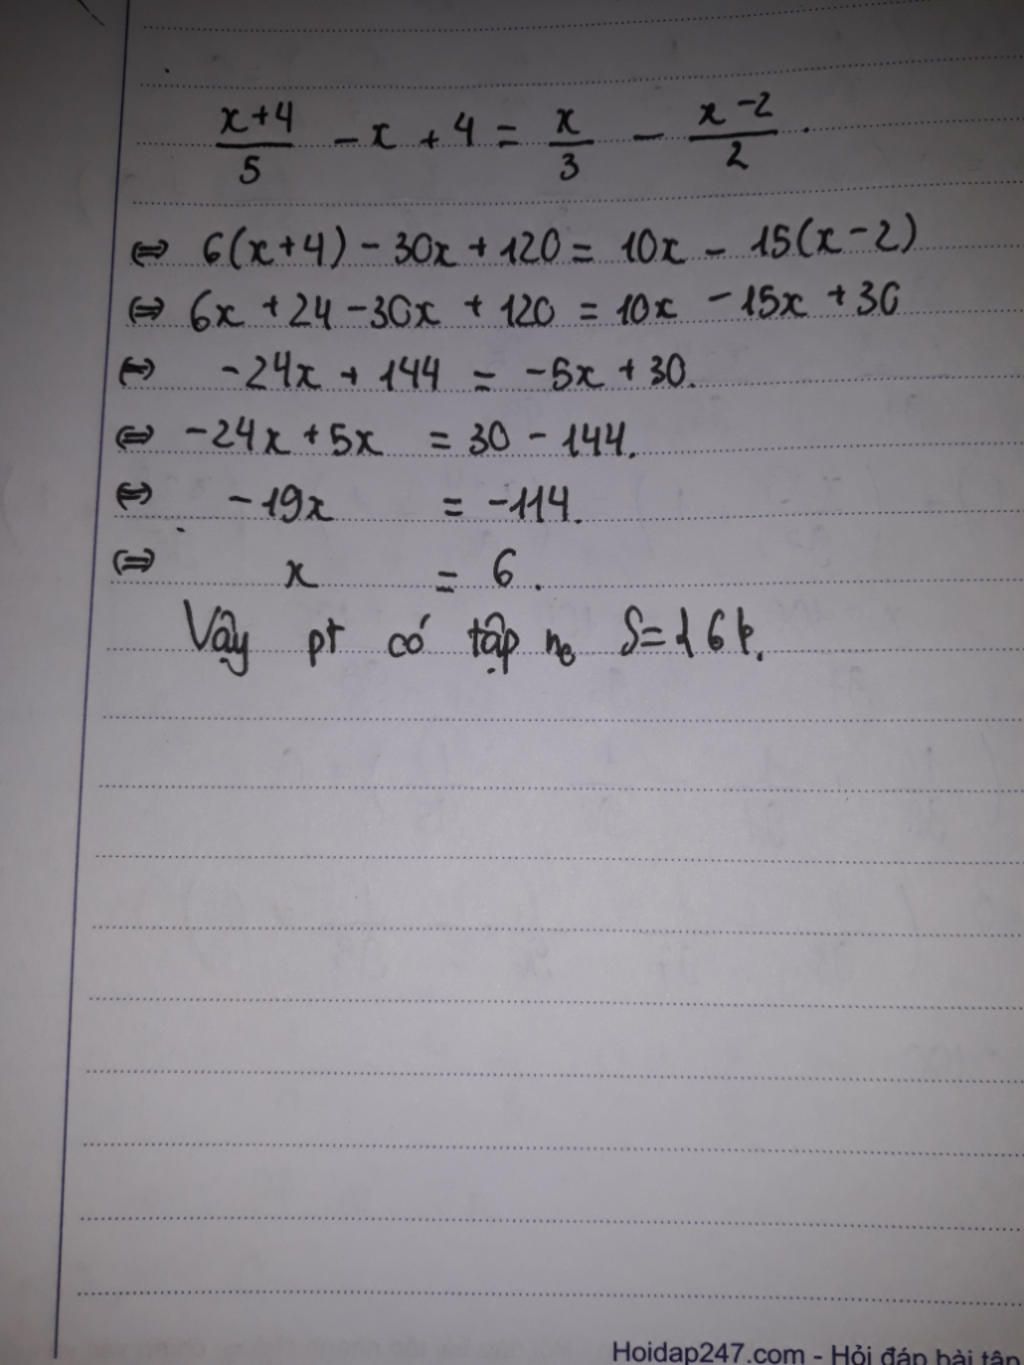 x+4/5 - x + 4 = x/3 - x-2/2 .
⇔ 6(x+4) - 30x + 120 = 10x - 15(x-2)
⇔ 6x + 24 - 30x + 120 = 10x - 15x + 30
⇔ -24x + 144 = -5x + 30.
⇔ -24x + 5x = 30 - 144.
⇔ -19x = -114.
⇔ x = 6.
Vậy pt có tập no S={6}.
Hoidap247.com - Hỏi đáp bài tập